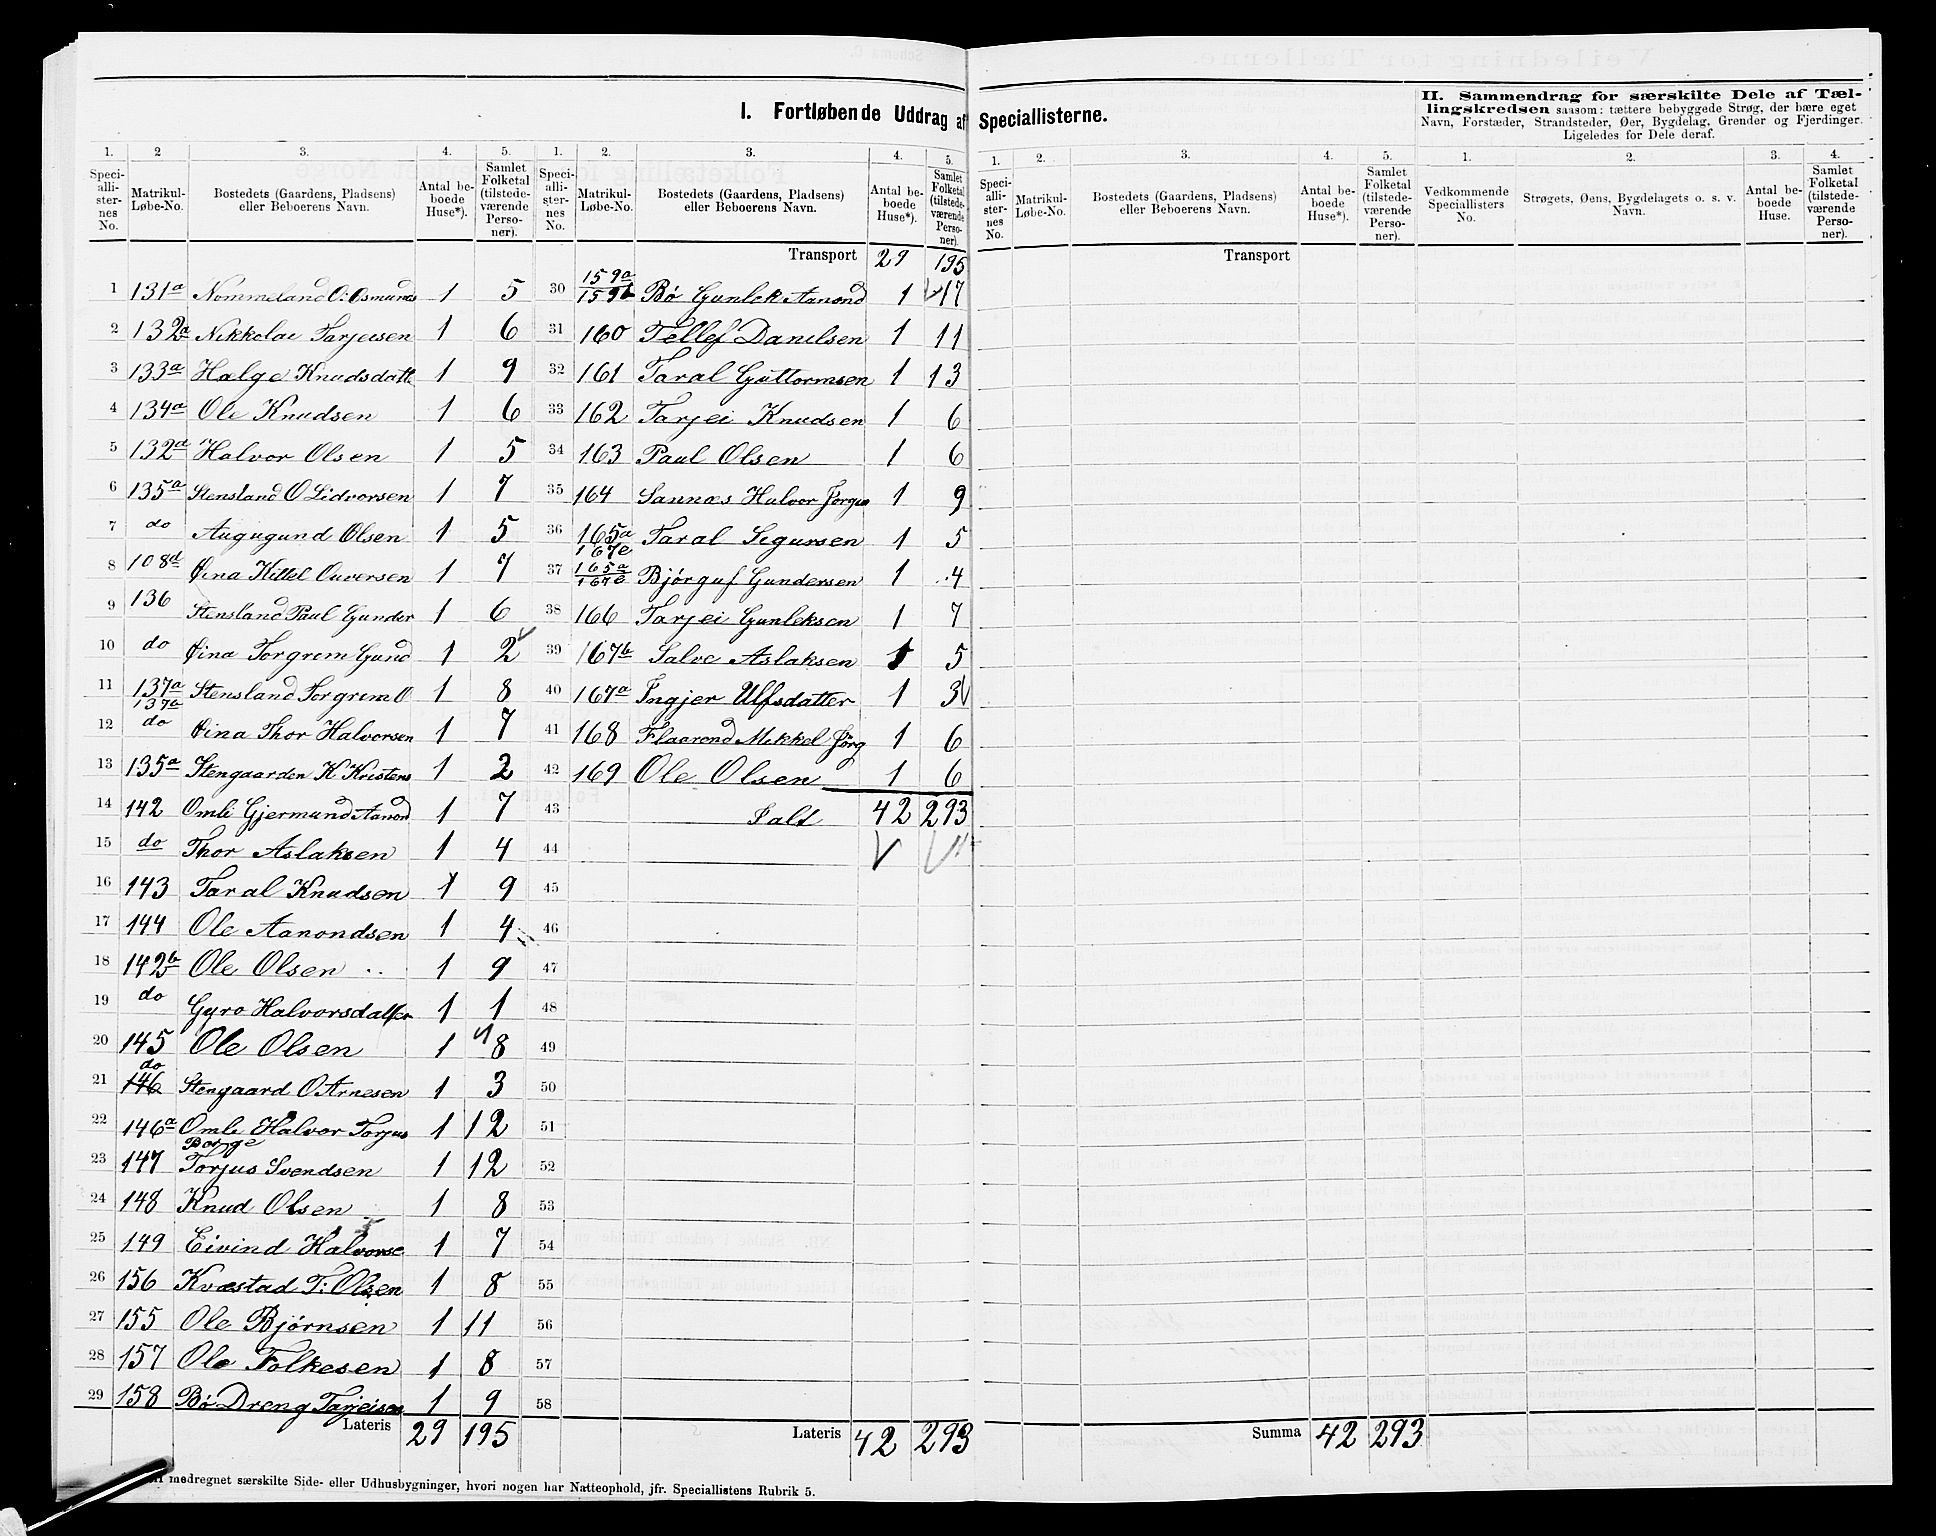 I. Fortløbende Uddrag af Speciallisterne.
II. Sammendrag for særskilte Dele af Tæl-
lingskredsen saasom: tættere bebyggede Strøg, der bære eget
Navn, Forstæder, Strandsteder, Øer, Bygdelag, Grender og Fjerdinger.
Ligeledes for Dele deraf.
1. 2 3. 4. 5. 1. 2. 3. 4. 5. 1. 2. 3. 4. 5. 1. 2. 3. 4.
Speci-alli-ster-nes No. Matrikul-Løbe-No. Bostedets (Gaardens, Pladsens) eller Beboerens Navn. Antal be-boede Huse*). Samlet Folketal (tilstede-værende Perso-ner).
Speci-alli-ster-nes No. Matrikul-Løbe-No. Bostedets (Gaardens, Pladsens) eller Beboerens Navn. Antal be-boede Huse*). Samlet Folketal (tilstede-værende Perso-ner).
Speci-alli-ster-nes No. Matrikul-Løbe-No. Bostedets (Gaardens, Pladsens) eller Beboerens Navn. Antal be-boede Huse*). Samlet Folketal (tilstede-værende Perso-ner).
Vedkommende Speciallisters No. Strøgets, Øens, Bygdelagets o. s. v. Navn. Antal be-boede Huse. Samlet Folketal (tilstede-værende Perso-ner).
1 131a Nommeland O: Osmunds 1 5
2 132a Nikkolai Tarjeisen 1 6
3 133a Hælge Knudsdatt 1 9
4 134a Ole Knudsen 1 6
5 132a Halvor Olsen 1 5
6 135a Stensland O Lidvorsen 1 7
7 do Augugund Olsen 1 5
8 108d Øina Kittel Ouversen 1 7
9 136 Stensland Paul Gunder 1 6
10 do Øina Torgrem Gund 1 2
11 137a Stensland Torgrem O 1 8
137a
12 do Øina Thor Halvorsen 1 7
13 135a Stengaarden K Kristens 1 2
14 142 Omli Gjermund Aanond 1 7
15 do Thor Aslaksen 1 4
16 143 Taral Knudsen 1 9
17 144 Ole Aanondsen 1 4
18 142b Ole Olsen 1 9
19 do Gyro Halvorsdatter 1 1
20 145 Ole Olsen 1 8
do
21 146 Stengaard O Arnesen 1 3
22 146a Omli Halvor Torjus 1 12
Borge
23 147 Torjus Svendsen 1 12
24 148 Knud Olsen 1 8
25 149 Eivind Halvorse 1 7
26 156 Kvæstad T: Olsen 1 8
27 155 Ole Bjørnsen 1 11
28 157 Ole Folkesen 1 8
29 158 Bø Dreng Tarjeisen 1 9
Lateris 29 195
Transport 29 195
159a
30 159b Bø Gunlek Aanond 1 17
31 160 Tellef Danilsen 1 11
32 161 Taral Guttormsen 1 13
33 162 Tarjei Knudsen 1 6
34 163 Paul Olsen 1 6
35 164 Sannæs Halvor Jørgen 1 9
36 165a Taral Sigursen 1 5
167e
37 165a Bjørguf Gundersen 1 4
167e
38 166 Tarjei Gunleksen 1 7
39 167b Salve Aslaksen 1 5
40 167a Ingjer Ulfsdatter 1 3
41 168 Flaarend Mikkel Jørg 1 6
42 169 Ole Olsen 1 6
43 Ialt 42 293
44
45
46
47
48
49
50
51
52
53
54
55
56
57
58
Lateris 42 293
Transport
Summa 42 293
medregnet særskilte Side- eller Udhusbygninger, hvori nogen har Natteophold, jfr. Speciallistens Rubrik 5.